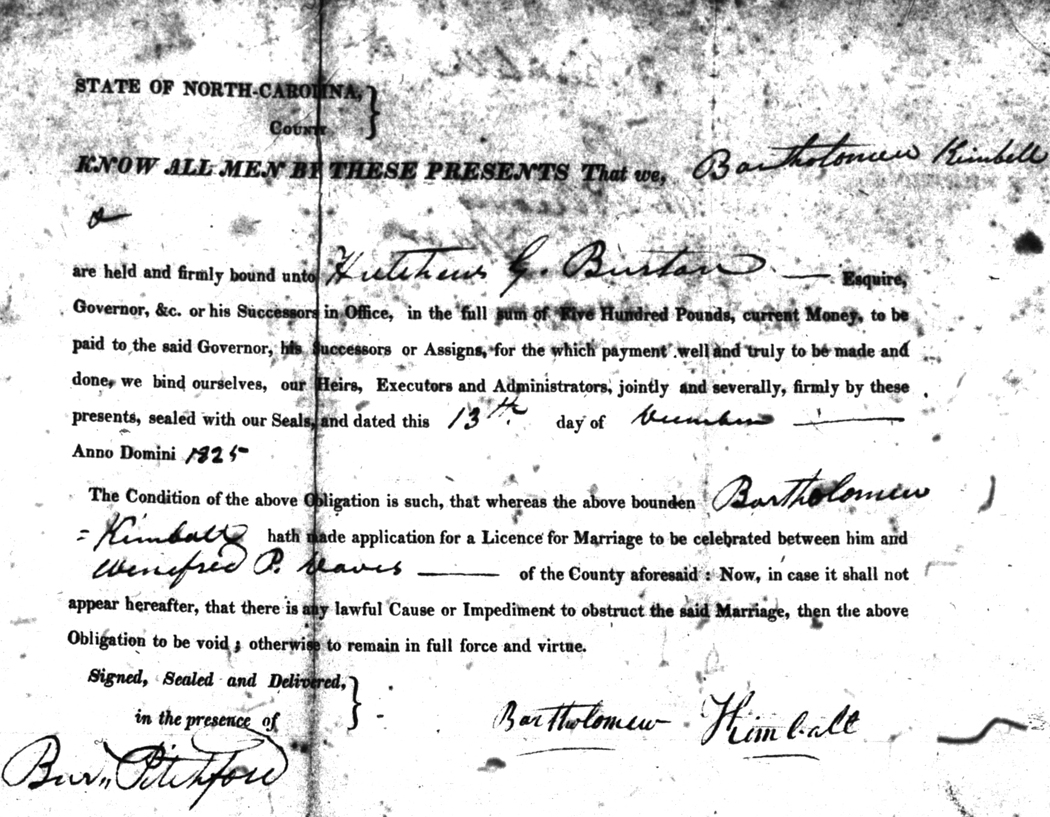 STATE OF NORTH-CAROLINA, }
County
KNOW ALL MEN BY THESE PRESENTS That we, Bartholomew Kimbell
&
are held and firmly bound unto Hutchins G. Burton — Esquire,
Governor, &c. or his Successors in Office, in the full sum of Five Hundred Pounds, current Money, to be
paid to the said Governor, his Successors or Assigns, for the which payment well and truly to be made and
done, we bind ourselves, our Heirs, Executors and Administrators, jointly and severally, firmly by these
presents, sealed with our Seals, and dated this 13th day of December —
Anno Domini 1825
The Condition of the above Obligation is such, that whereas the above bounden Bartholomew
= Kimball hath made application for a Licence for Marriage to be celebrated between him and
Winefred P. Davis — of the County aforesaid : Now, in case it shall not
appear hereafter, that there is any lawful Cause or Impediment to obstruct the said Marriage, then the above
Obligation to be void ; otherwise to remain in full force and virtue.
Signed, Sealed and Delivered, }
in the presence of
Bartholomew Kimball
Pitchford